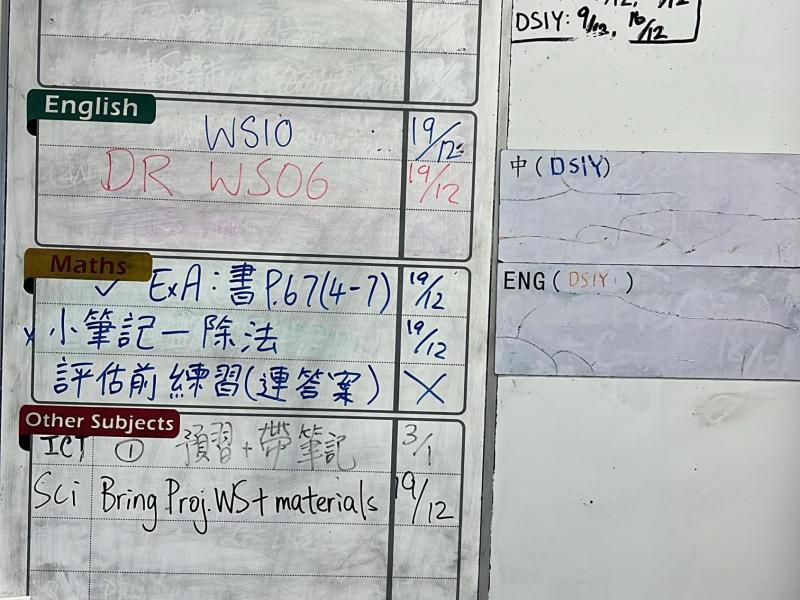 DSIY: 9/12, 16/12
English
WS10 19/12
DR WS06 19/12
中(DSIY)
Maths
✓ ExA:書P.67(4-7) 19/12
ENG(DSIY)
x 小筆記一除法 19/12
評估前練習(連答案) X
Other Subjects
ICT ① 預習+帶筆記 3/1
Sci Bring Proj.WS+materials 19/12